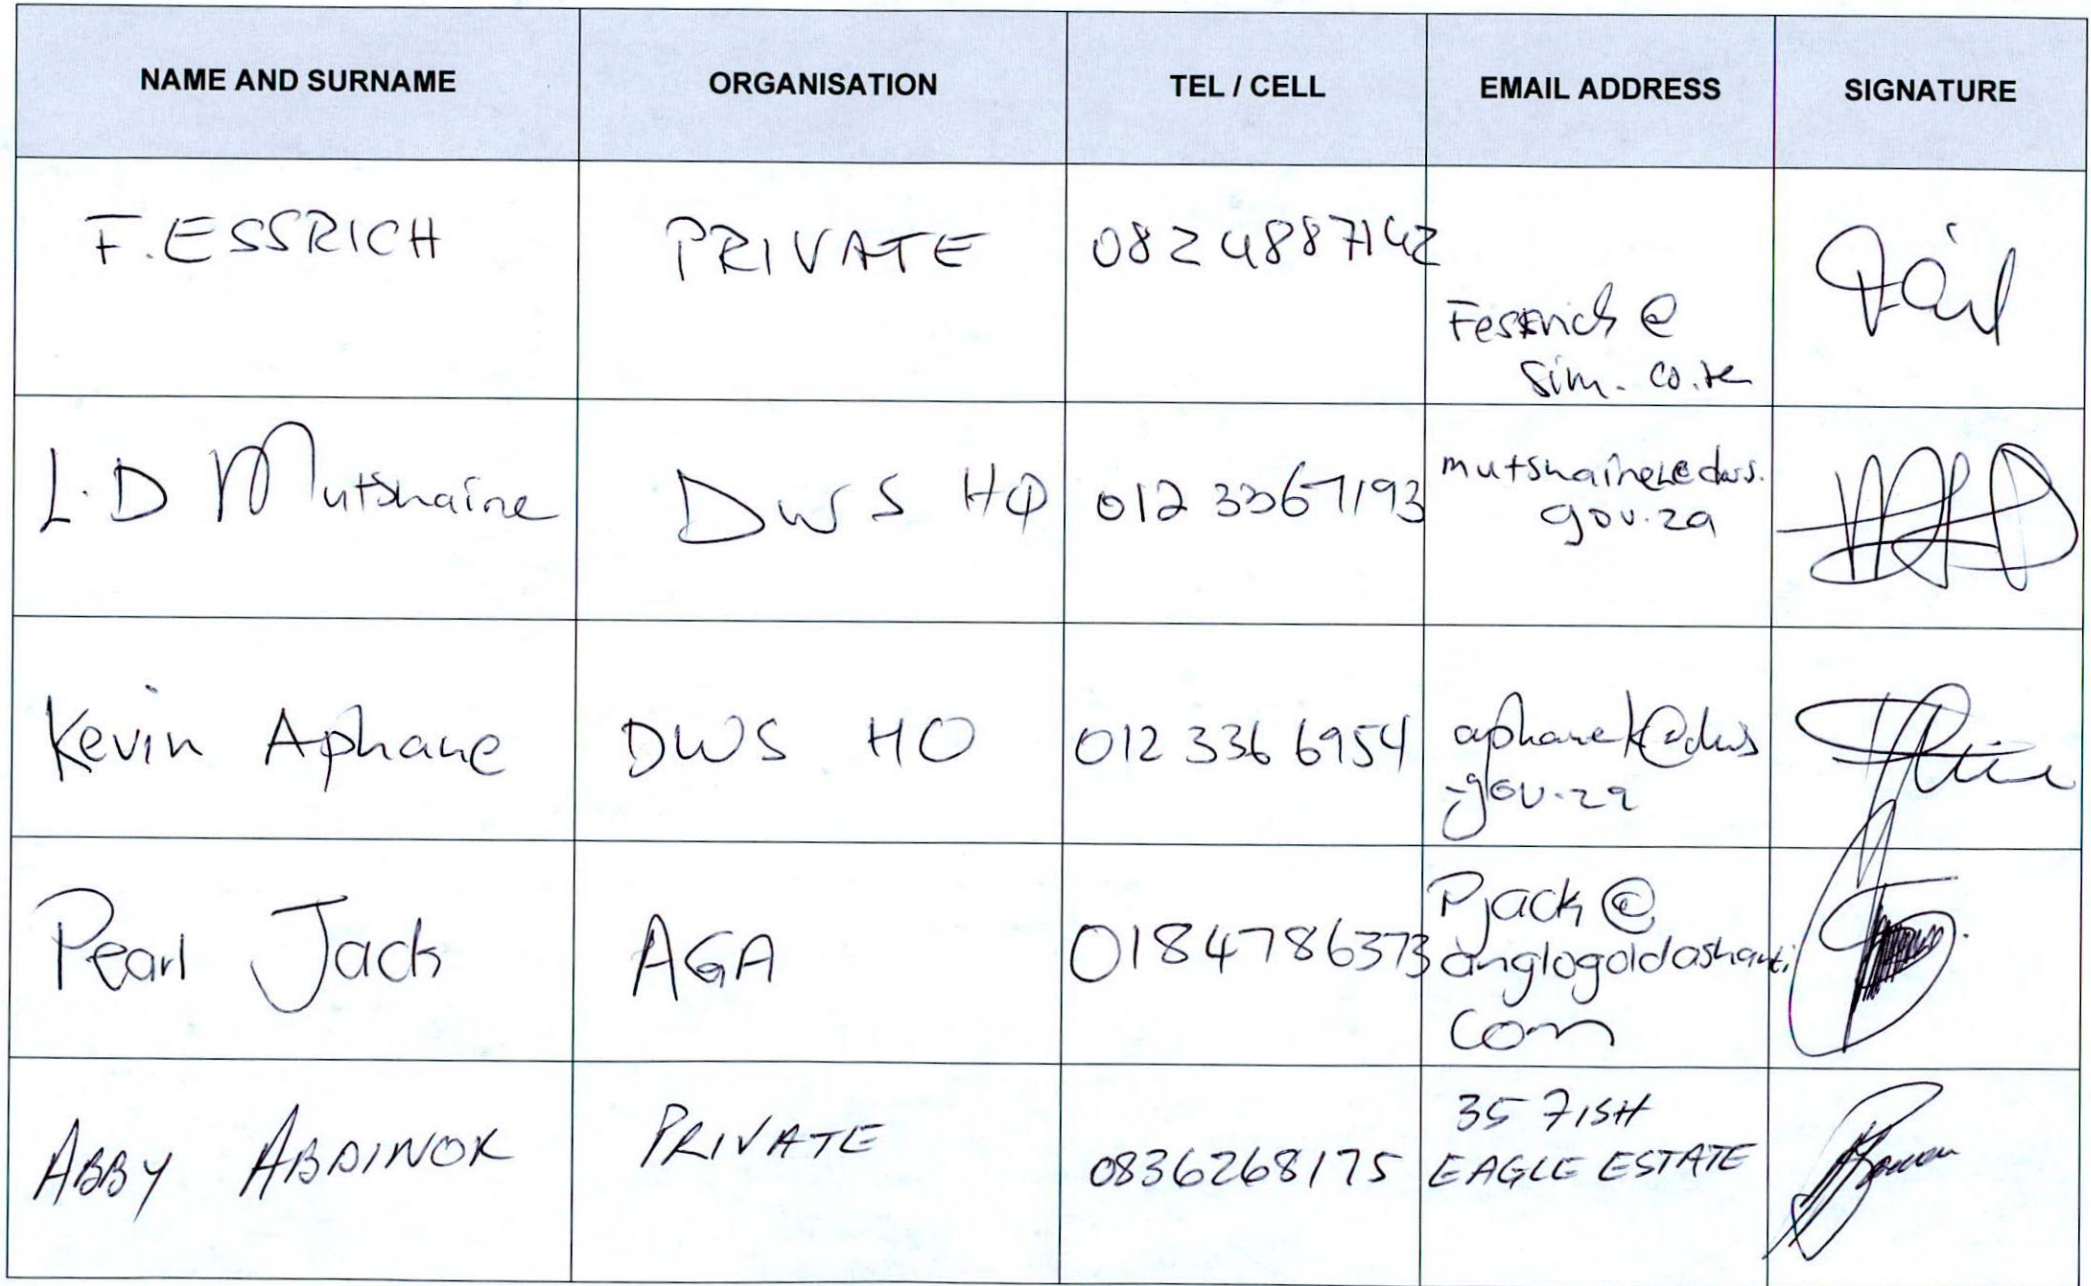 NAME AND SURNAME ORGANISATION TEL / CELL EMAIL ADDRESS SIGNATURE
F. ESSRICH PRIVATE 082 4887142
@
sim. co.
L.D Mutshaine DWS HO 012 3367193 mutshainele@dws.
gov.za
Kevin Aphane DWS HO 012 336 6954 aphanek@dws
.gov.za
Pearl Jack AGA 0184786373 Pjack@
anglogoldashanti
com
ABBY PRIVATE 0836268175 35 FISH
EAGLE ESTATE